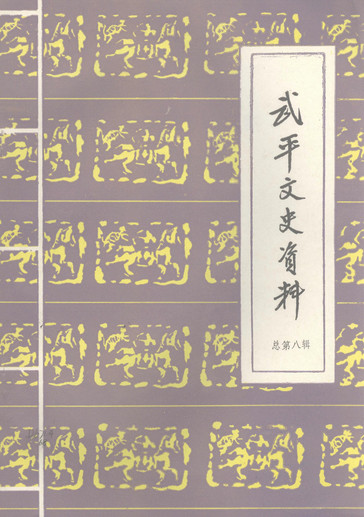 武平文史资料
总第八辑